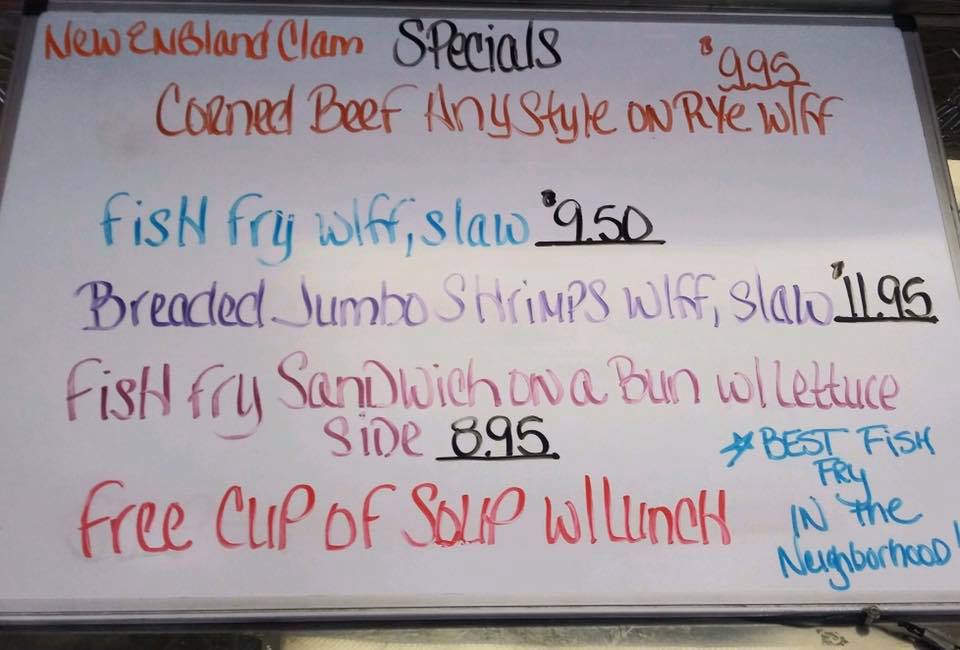 New England Clam Specials
$9.95
Corned Beef Any Style on Rye w/ff
Fish fry w/ff, slaw $9.50
Breaded Jumbo Shrimps w/ff, slaw $11.95
Fish fry Sandwich on a Bun w/ Lettuce
Side 8.95
☆ BEST FISH
FRY
IN the
Neighborhood!
Free Cup of Soup w/ Lunch